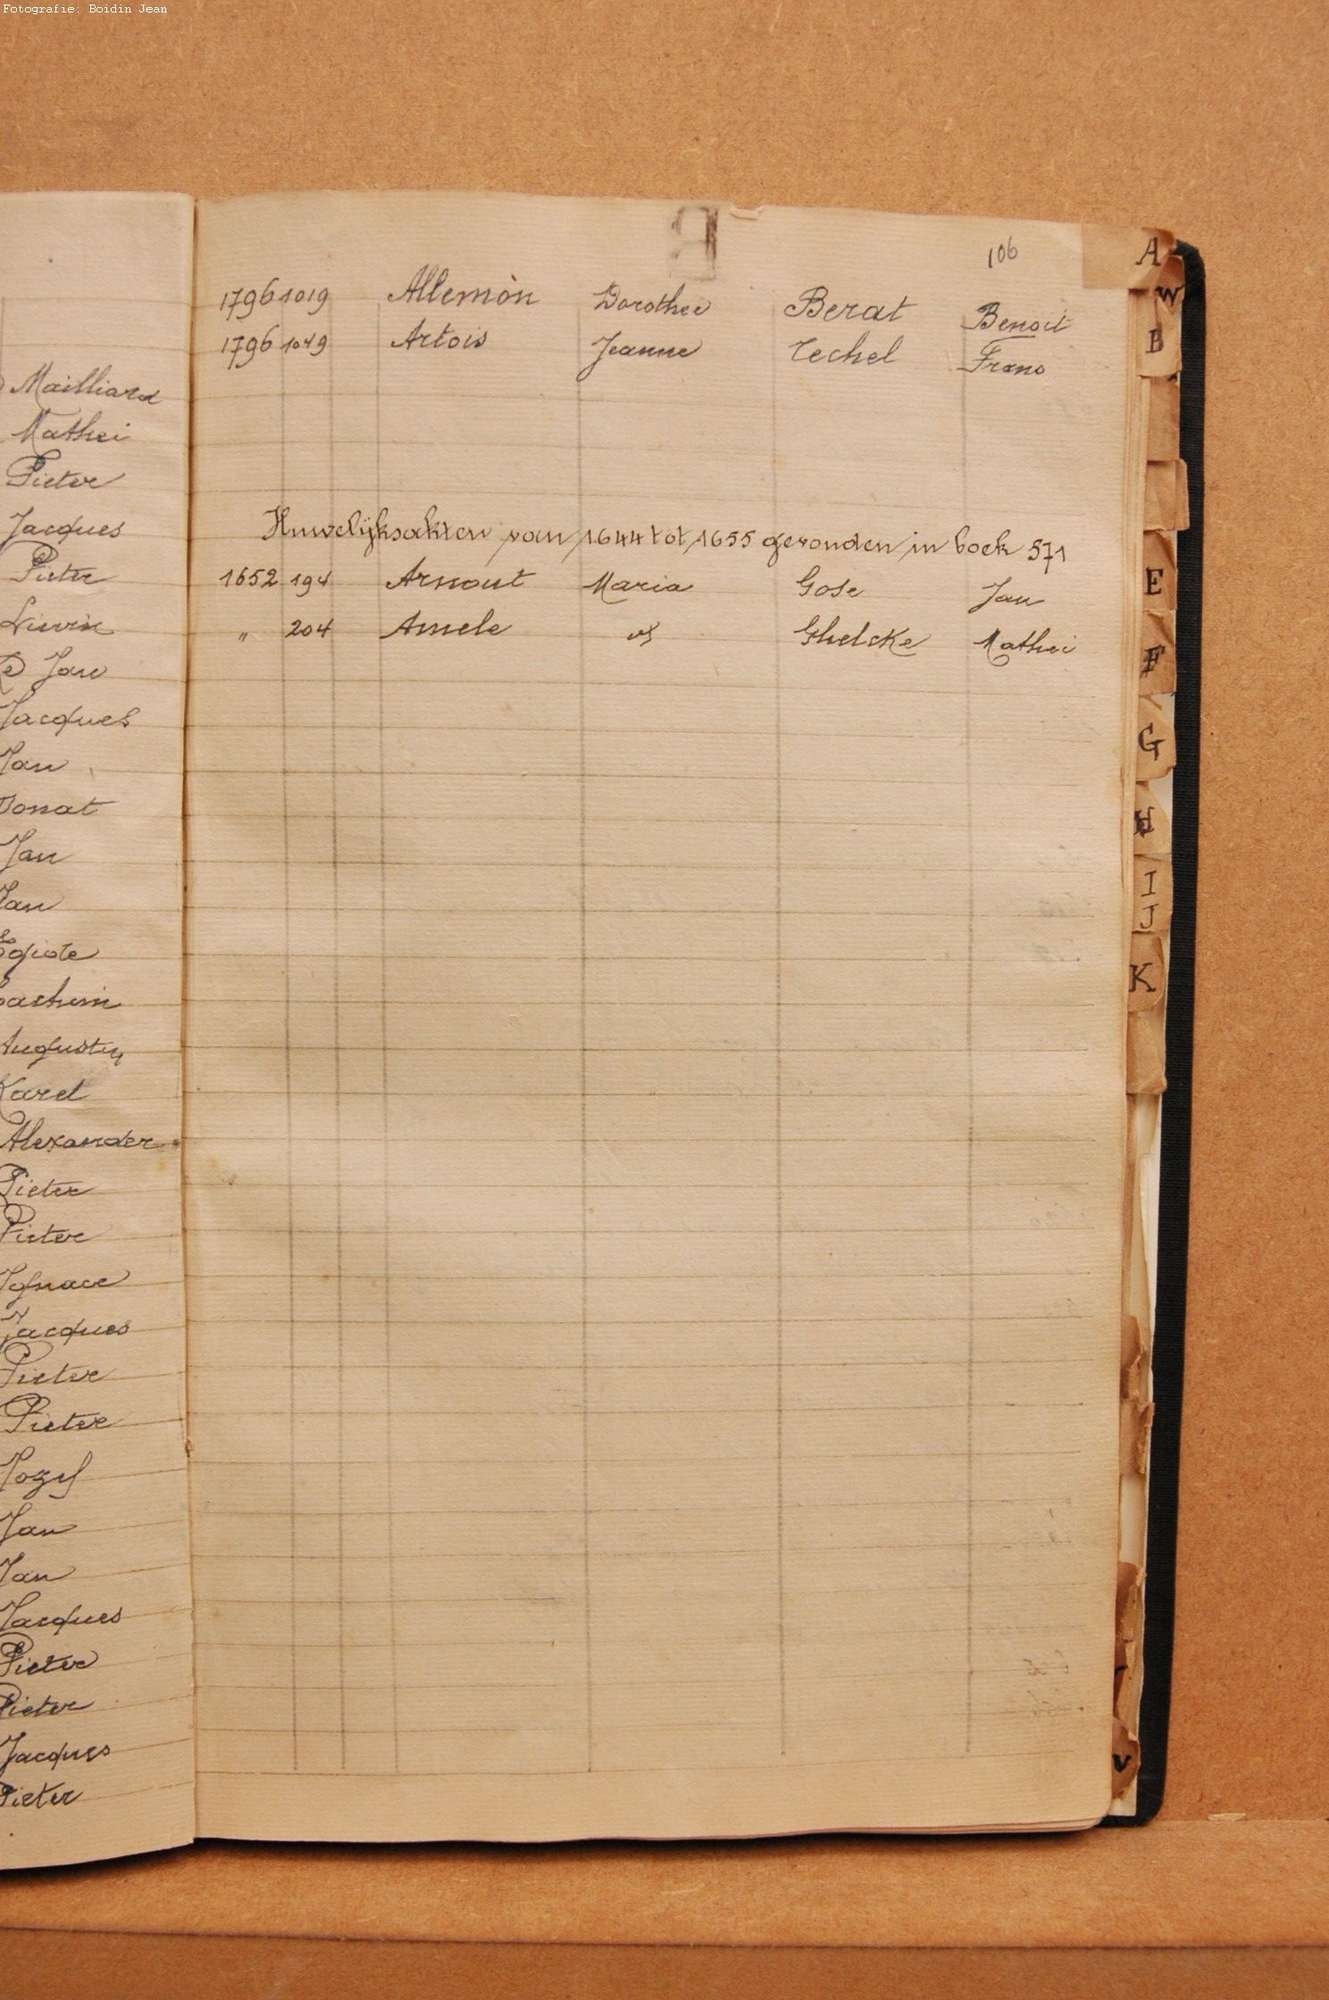 Fotografie: Boidin Jean
Mailliard
Mathei
Pieter
Jacques
Pieter
Lievin
Jan
Jacques
Jan
Donat
Jan
Jan
Egide
Joachim
Augustin
Karel
Alexander
Pieter
Pieter
Ignace
Jacques
Pieter
Pieter
Jozef
Jan
Jan
Jacques
Pieter
Pieter
Jacques
Pieter
106
1796 1019 Allemon Dorothee Berat Benoit
1796 1049 Artois Jeanne Techel Frans
Huwelijksakten van 1644 tot 1655 gevonden in boek 571
1652 194 Arnout Maria Gose Jan
" 204 Amele Ghelcke Mathei
A
W
B
E
F
G
H
I
J
K
V